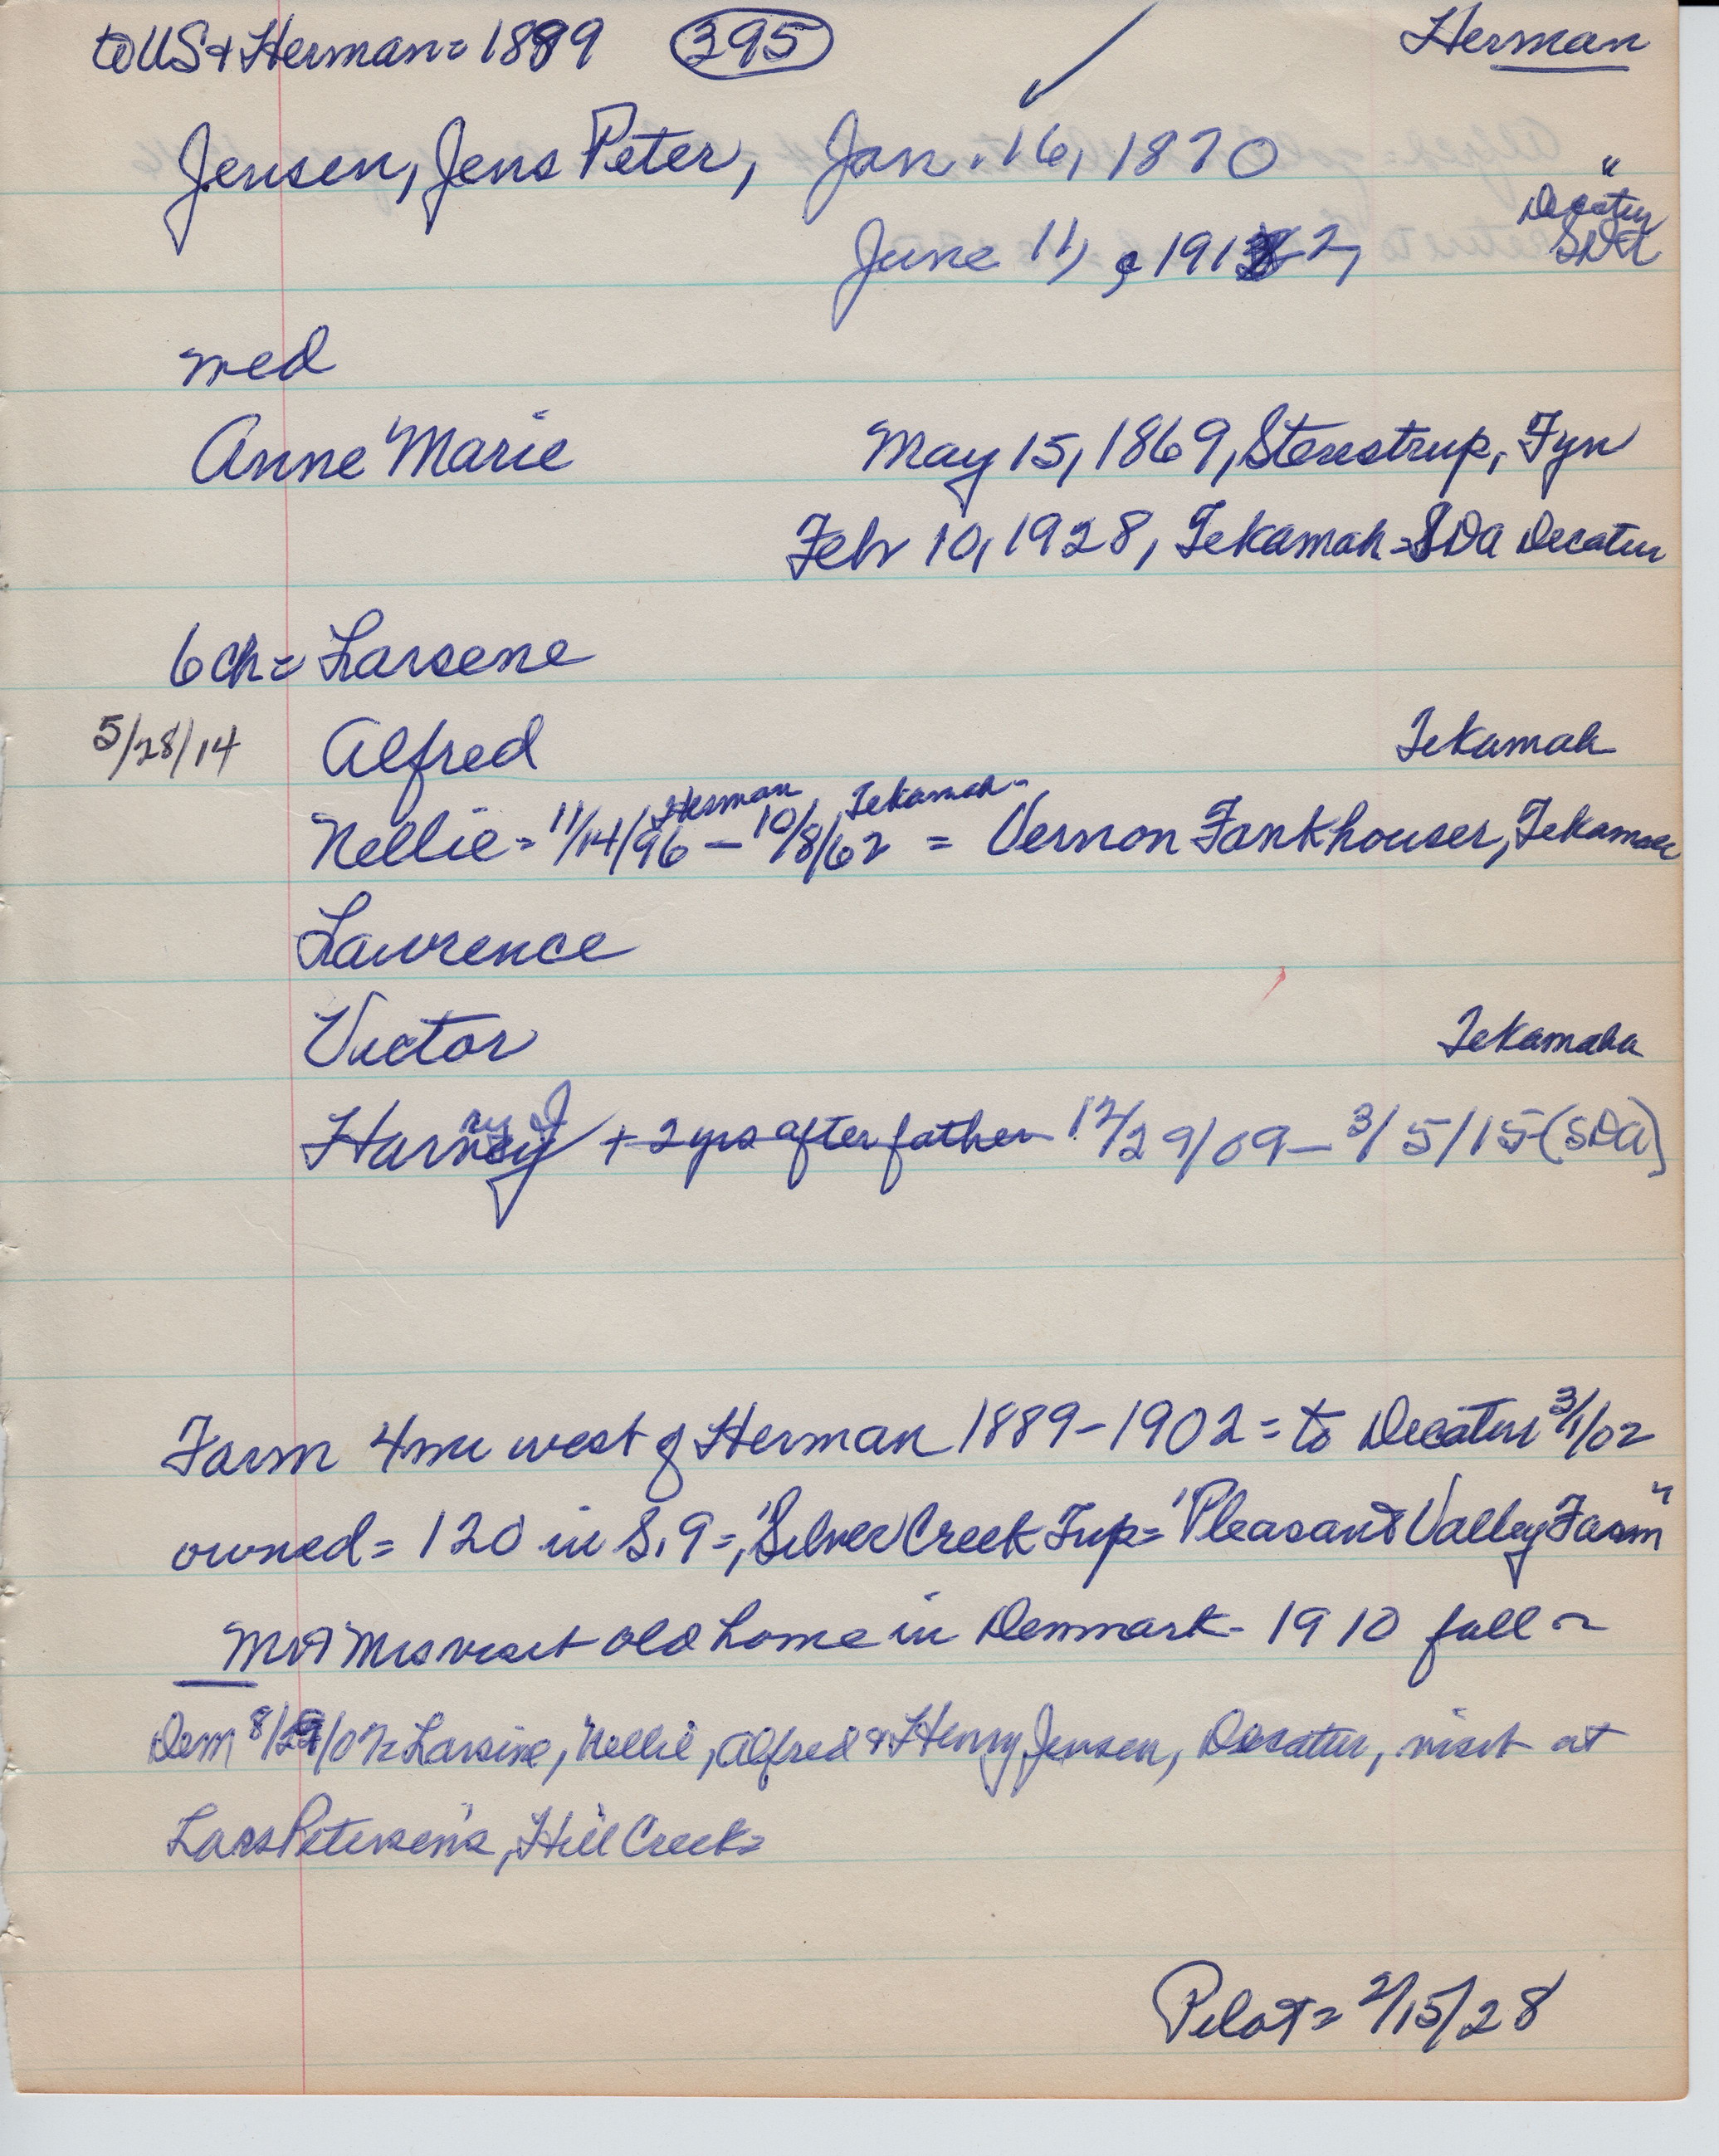 to US & Herman = 1889 395 Herman
Jensen, Jens Peter, Jan. 16, 1870 "
Decatur
June 11, 1912, SDA
med
Anne Marie May 15, 1869, Stenstrup, Fyn
Febr 10, 1928, Tekamah - SDA Decatur
6 ch = Larsene
5/28/14 Alfred Tekamah
Herman Tekamah -
Nellie = 11/14/96 - 10/8/62 = Vernon Fankhouser, Tekamah
Lawrence
Victor Tekamah
ry J
Harvey + 2 yrs after father 12/29/09 - 3/5/15 (SDA)
Farm 4 mi west of Herman 1889 - 1902 = to Decatur 3/1/02
owned = 120 in S. 9 =, Silver Creek Twp = "Pleasant Valley Farm"
Mr & Mrs visit old home in Denmark - 1910 fall -
Dem 8/29/07 = Larsine, Nellie, Alfred & Henry Jensen, Decatur, visit at
Lars Petersen's, Hill Creek =
Pilot = 2/15/28